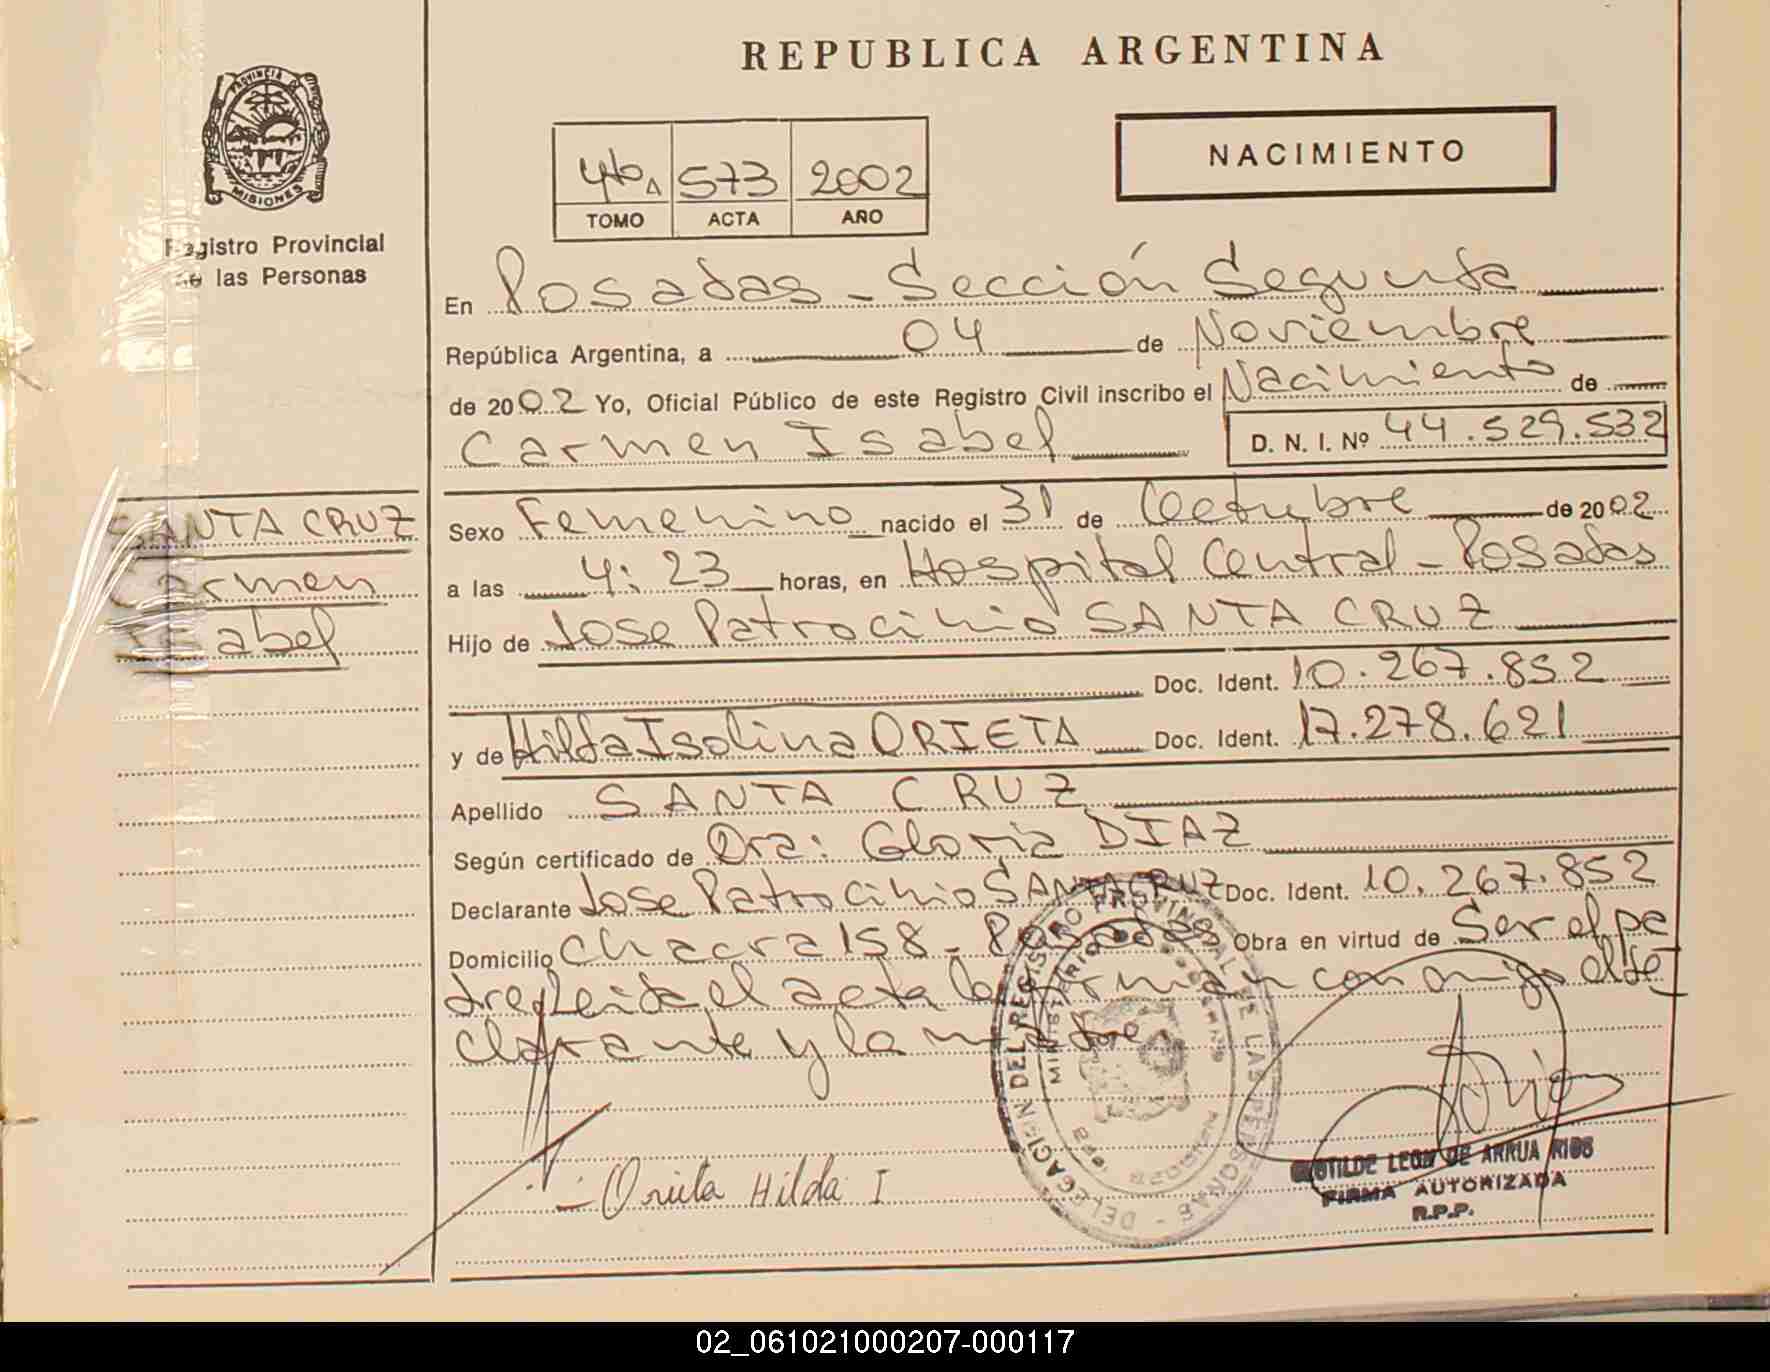 REPUBLICA ARGENTINA
PROVINCIA DE
MISIONES
Registro Provincial
de las Personas
NACIMIENTO
4to A 573 2002
TOMO ACTA AÑO
En Posadas - Sección Segunda
República Argentina, a 04 de Noviembre
de 2002 Yo, Oficial Público de este Registro Civil inscribo el Nacimiento de
Carmen Isabel D. N. I. Nº 44.529.532
SANTA CRUZ
Carmen
Isabel
Sexo Femenino nacido el 31 de Octubre de 2002
a las 4:23 horas, en Hospital Central - Posadas
Hijo de Jose Patrocinio SANTA CRUZ
Doc. Ident. 10.267.852
y de Hilda Isolina ORIETA Doc. Ident. 17.278.621
Apellido SANTA CRUZ
Según certificado de Dra: Gloria DIAZ
Declarante Jose Patrocinio SANTA CRUZ Doc. Ident. 10.267.852
Domicilio Chacra 158 - Posadas Obra en virtud de Ser el pa
dre Leida el acta la firman conmigo el de
clarante y la madre
DELEGACION DEL REGISTRO PROVINCIAL DE LAS PERSONAS
MINISTERIO DE GOBIERNO
Orieta Hilda I
CLOTILDE LEON DE ARRUA RIOS
FIRMA AUTORIZADA
R.P.P.
02_061021000207-000117